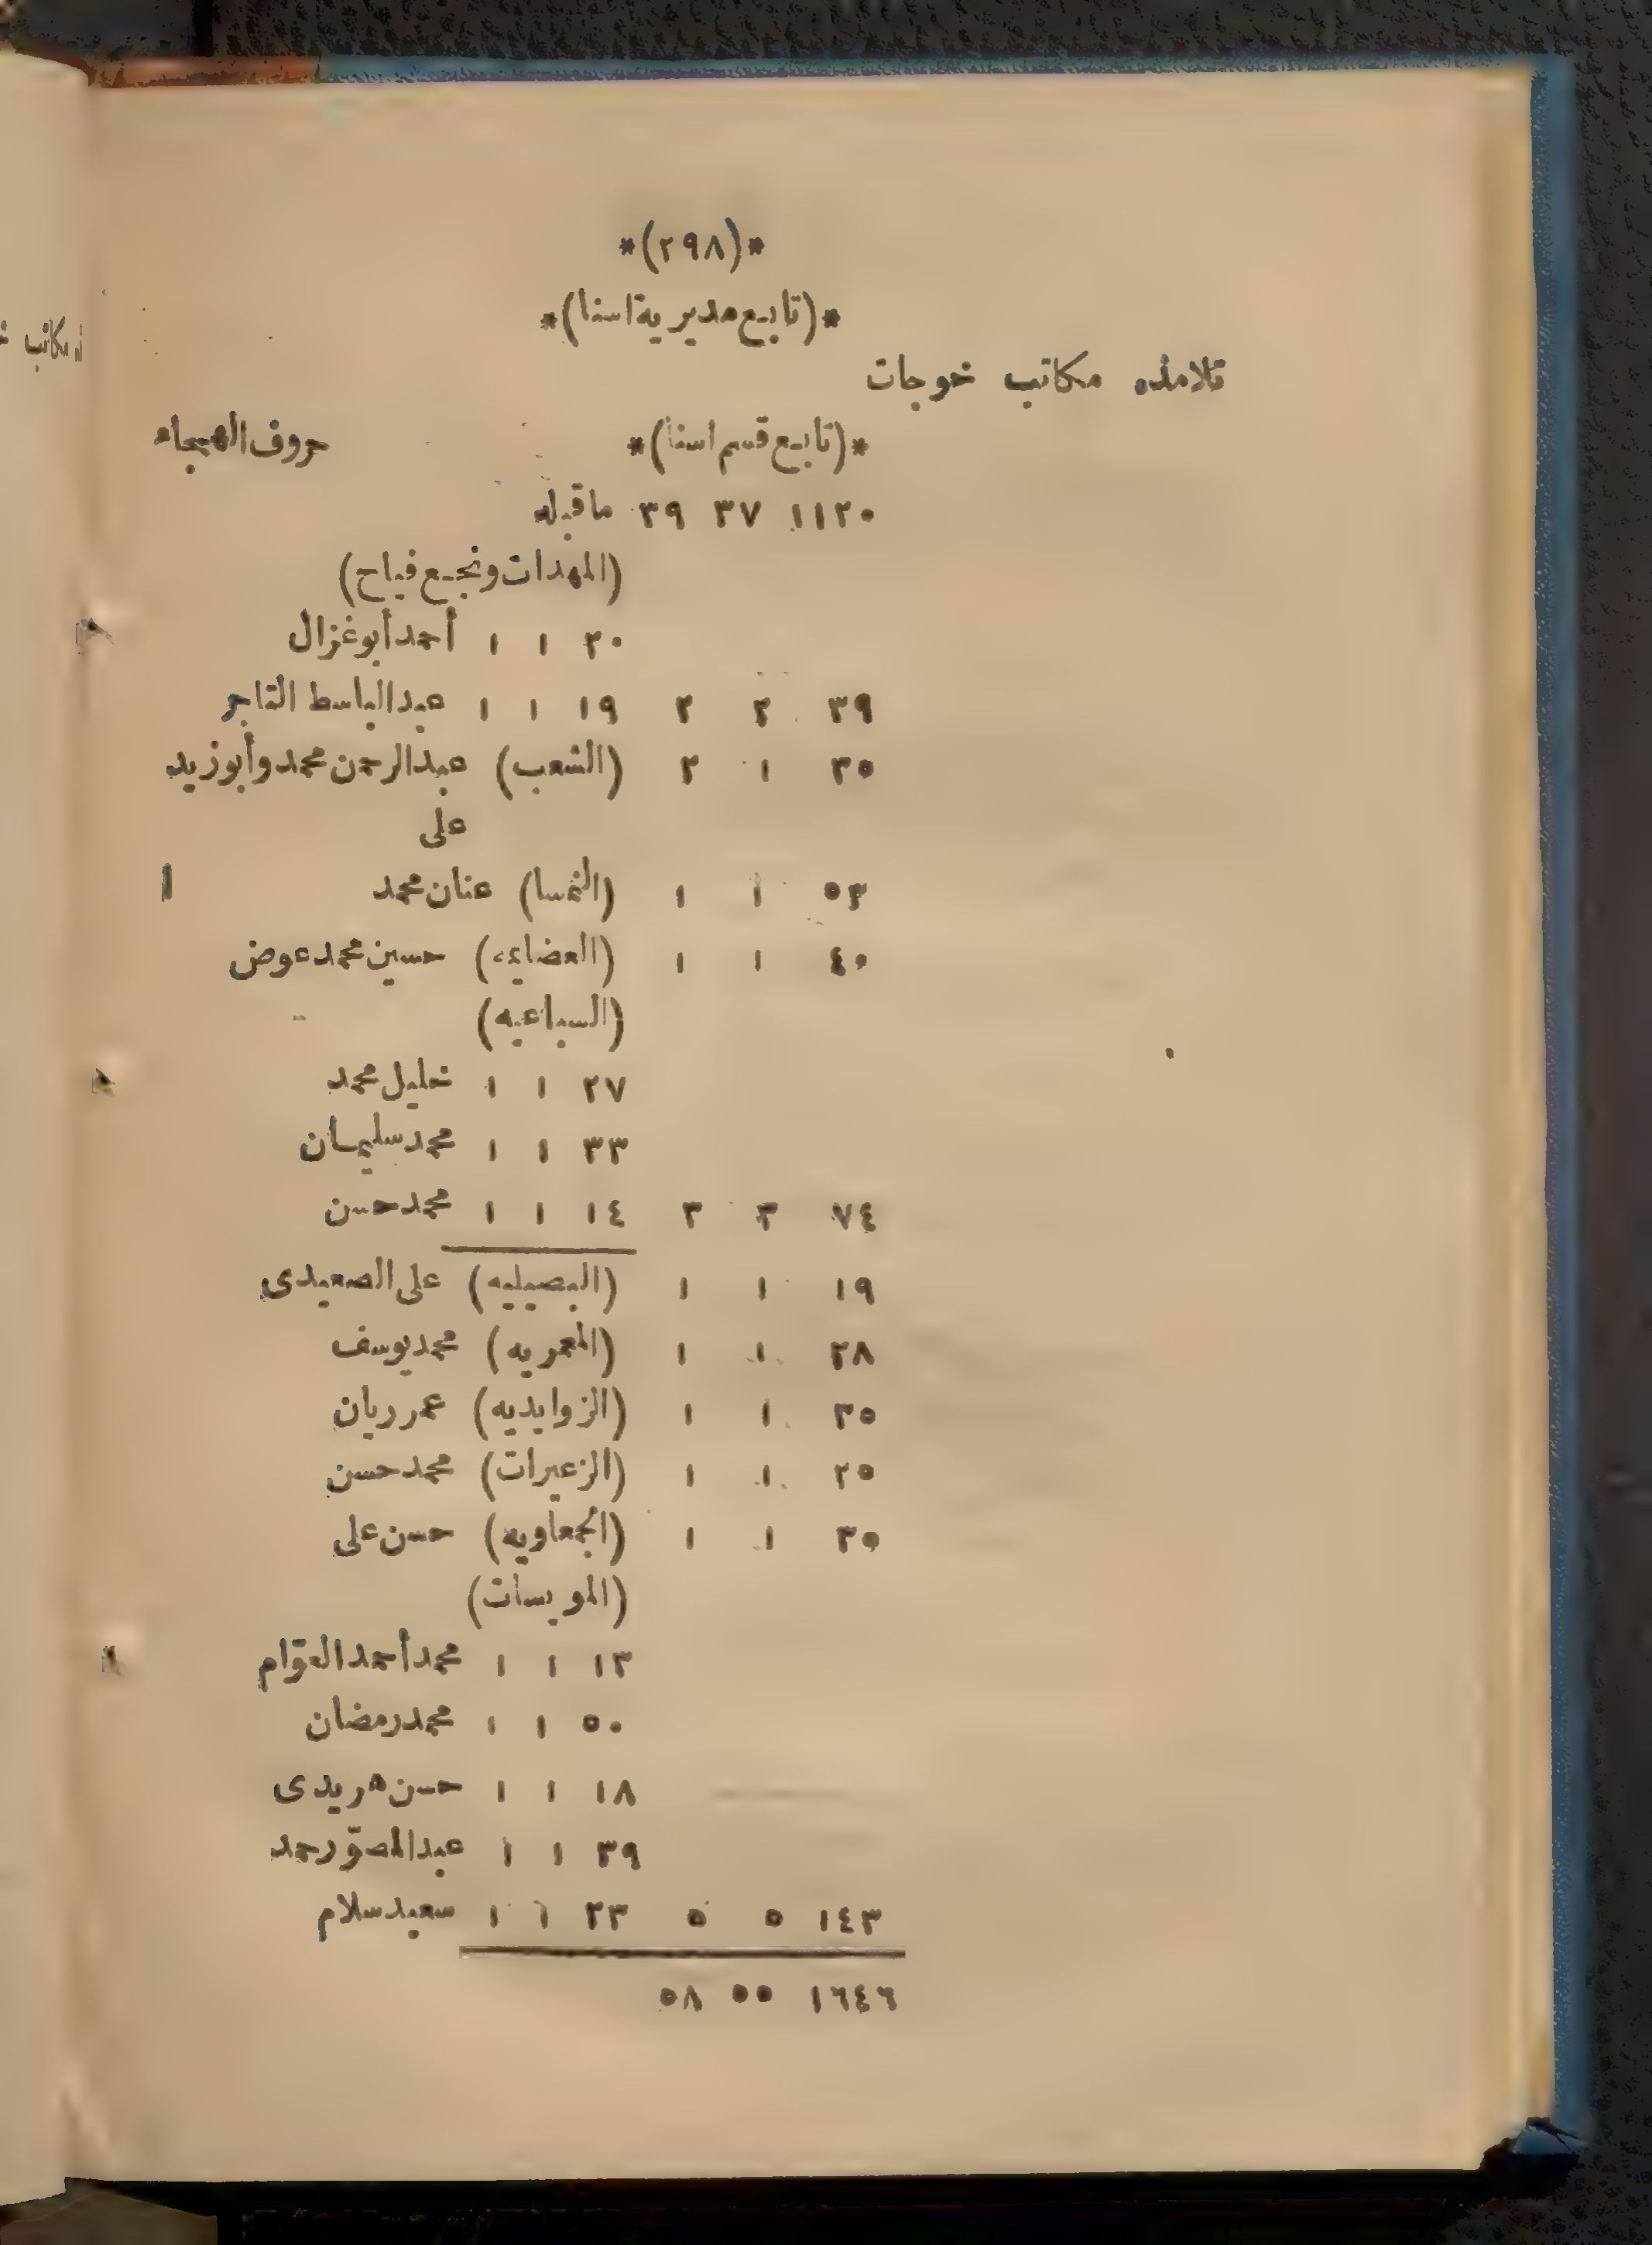 *(٢٩٨)*
*(تابع مديرية اسنا)*
تلامذه مكاتب خوجات
*(تابع قسم اسنا)* حروف الهجاء
١١٢٠ ٣٧ ٣٩ ماقبله
(المهدات ونجع فياح)
٢٠ ١ ١ أحمد أبوغزال
٣٩ ٢ ٢ ١٩ ١ ١ عبدالباسط التاجر
٣٥ ١ ٢ (الشعب) عبدالرحمن محمد وأبوزيد
على
٥٣ ١ ١ (النمسا) عنان محمد
٤٠ ١ ١ حسين محمد عوض
(السباعيه)
٢٧ ١ ١ خليل محمد
٣٣ ١ ١ محمد سليمان
٧٤ ٣ ٣ ١٤ ١ ١ محمد حسن
١٩ ١ ١ (البصيليه) على الصعيدى
٢٨ ١ ١ (المعمريه) محمد يوسف
٣٥ ١ ١ (الزوايديه) عمر ريان
٢٥ ١ ١ (الزعيرات) محمد حسن
٣٥ ١ ١ (الجعاويه) حسن على
(المويسات)
١٣ ١ ١ محمد أحمد العوّام
٥٠ ١ ١ محمد رمضان
١٨ ١ ١ حسن هريدى
٣٩ ١ ١ عبدالمصوّر حمد
١٤٣ ٥ ٥ ٢٣ ١ ١ سعيد سلام
١٦٤٦ ٥٥ ٥٨